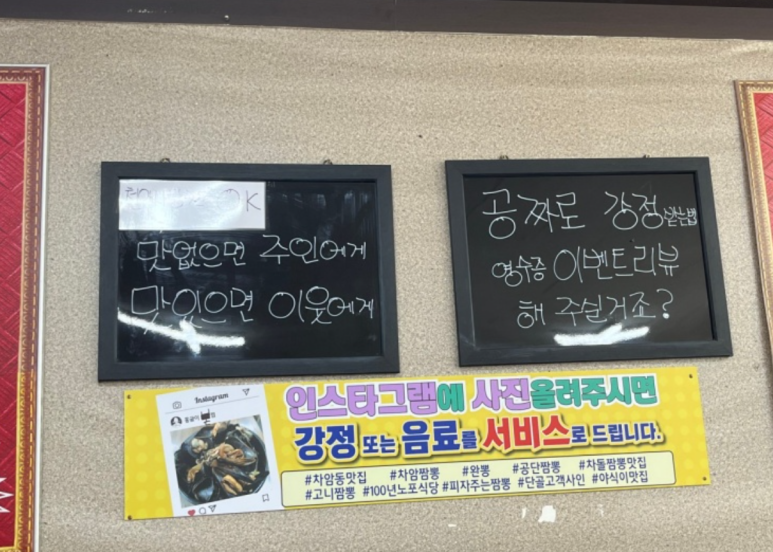 OK
맛없으면 주인에게
맛있으면 이웃에게
공짜로 강정 얻는법
영수증 이벤트리뷰
해 주실거죠?
Instagram
인스타그램에 사진올려주시면
강정 또는 음료를 서비스로 드립니다.
#차암동맛집 #차암짬뽕 #완뽕 #공단짬뽕 #차돌짬뽕맛집
#고니짬뽕 #100년노포식당 #피자주는짬뽕 #단골고객사인 #야식이맛집